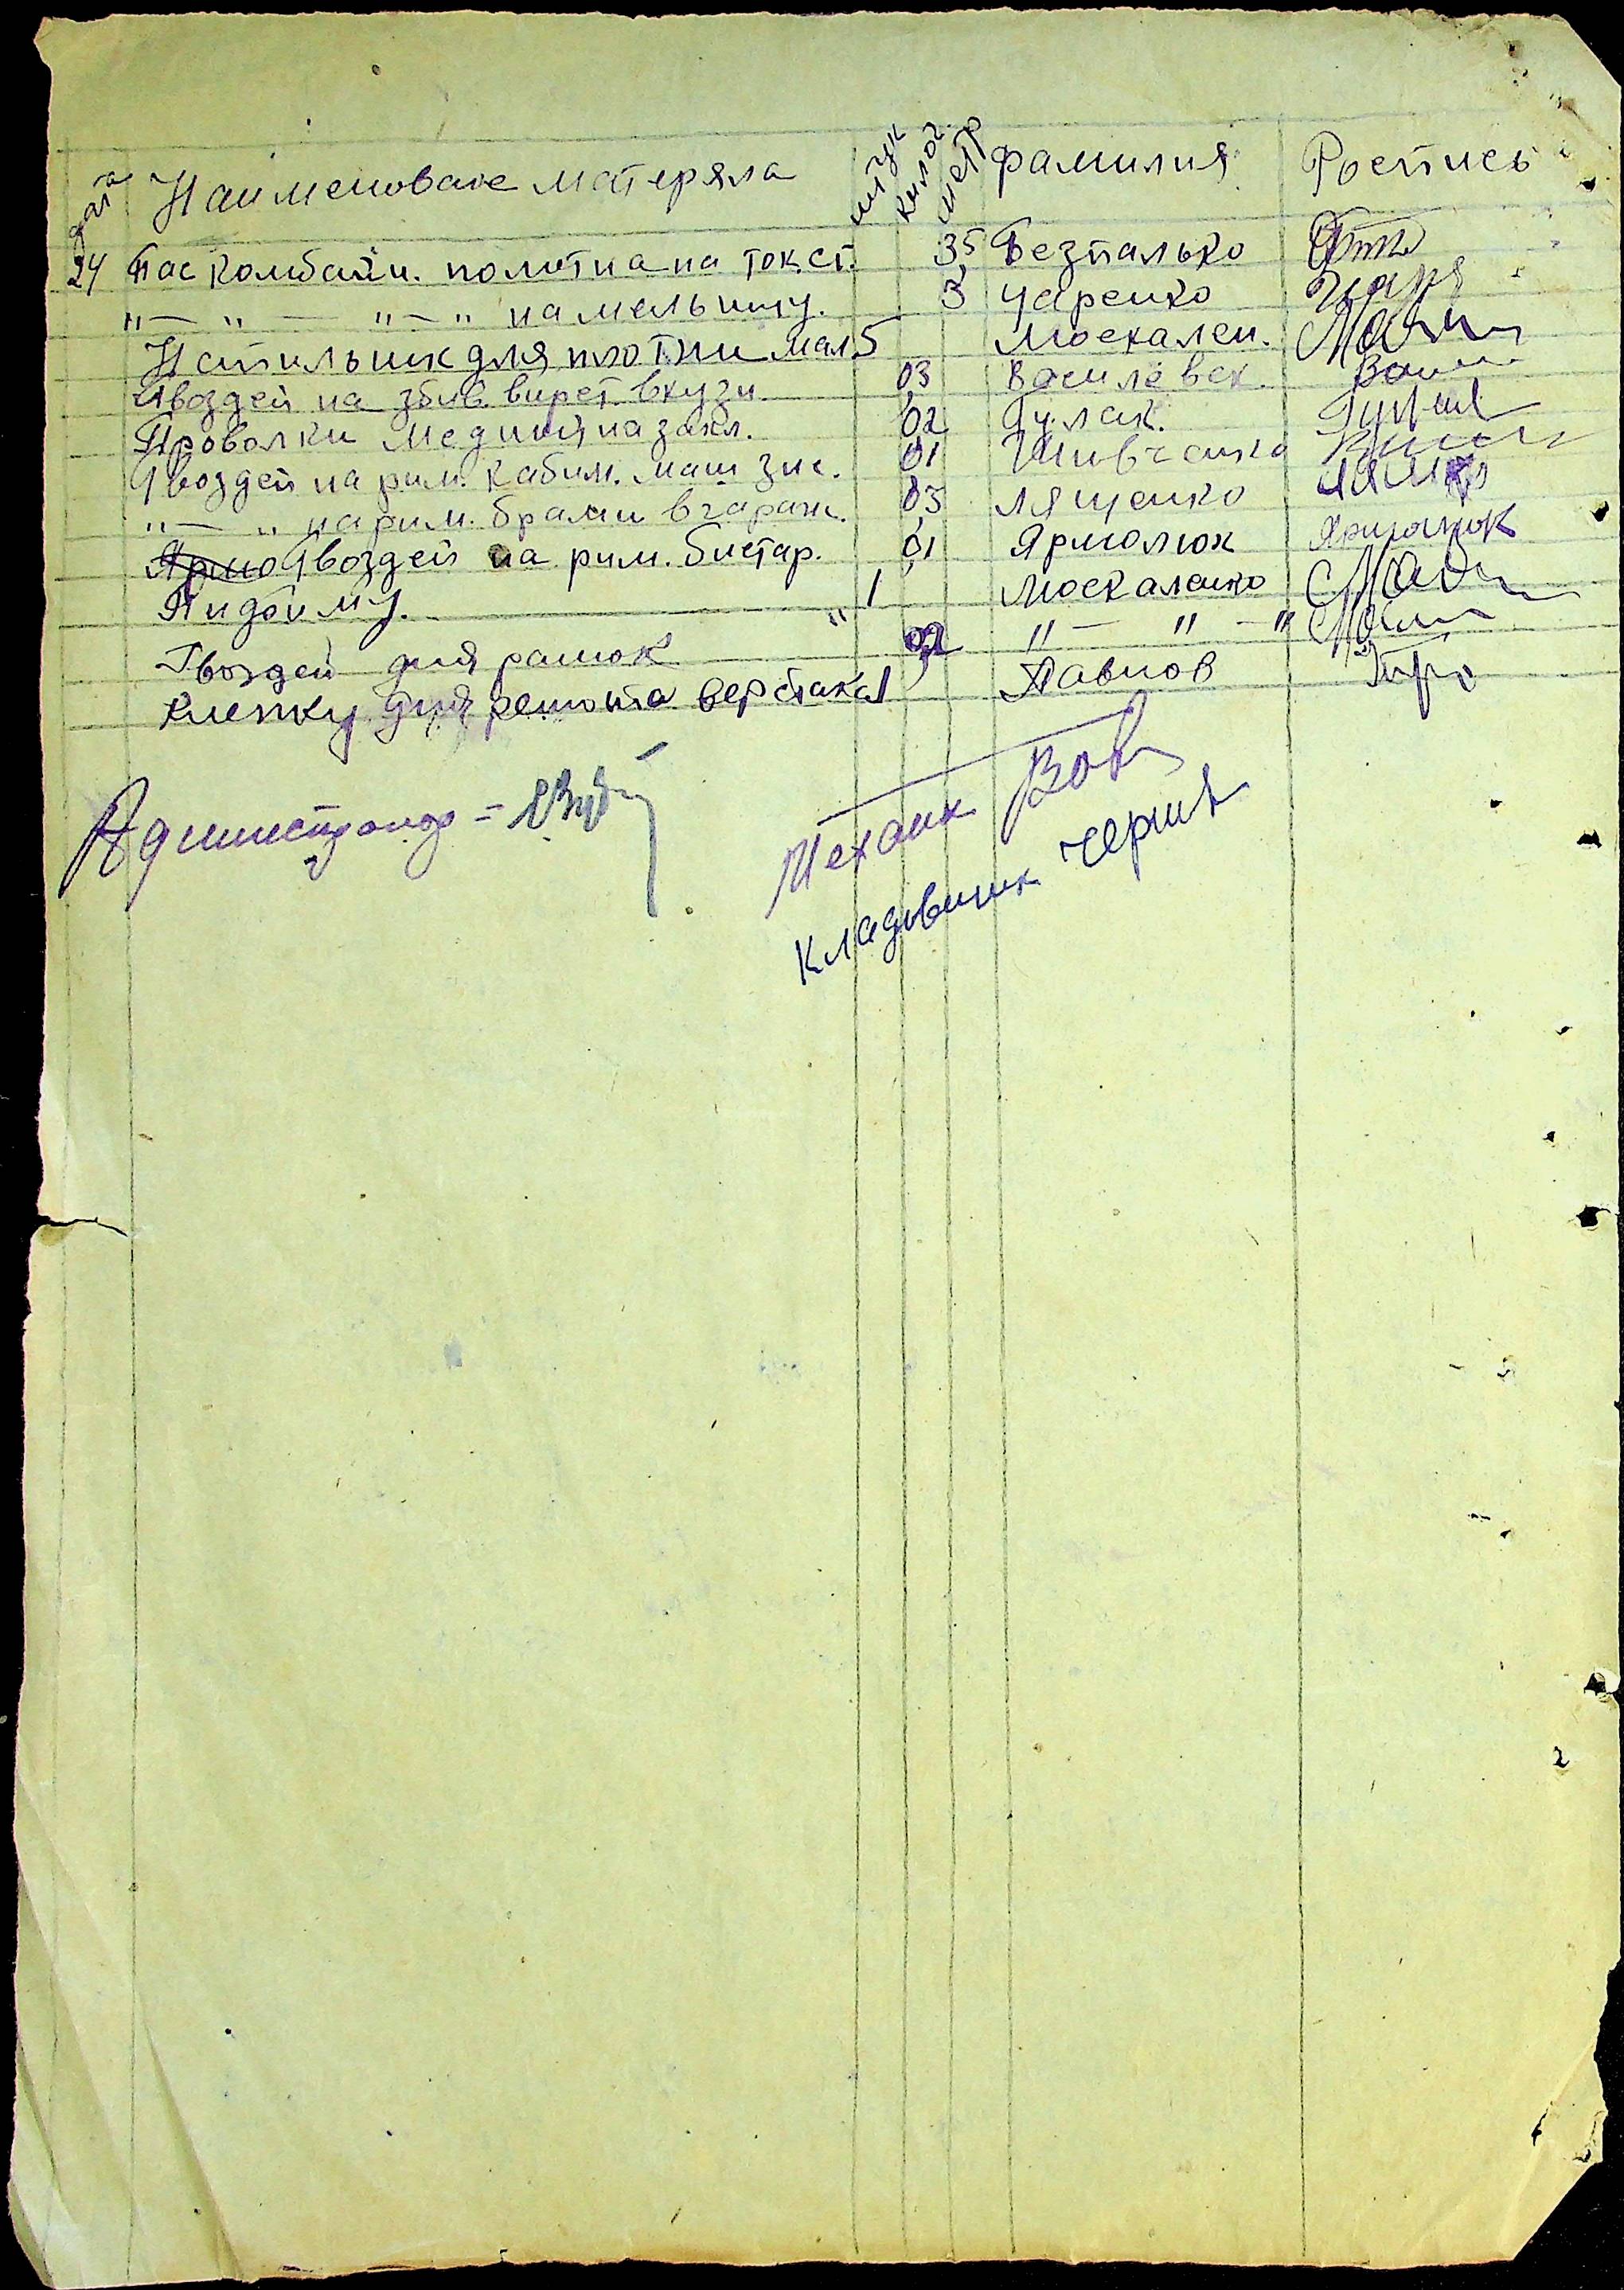 дата Наименоване матеряла штук килог метр фамилия Роспись
24 Пас комбайн. полотна на ток.ст. 3,5 Безпалько
"—"— "—" на мельницу. 3 Царенко Царе
Напильник для плотни мал. 5 Москален. Моск
Гвоздей на збив. вирст. в кузн. 0,3 Василевск. Васи
Проволки медний на закл. 0,2 Гулак. Гулак
Гвоздей на рим. кабин. маш зис. 0,1 Шивченко
"—" на рим. брами в гараж. 0,5 Лященко Лящ
Ярмо Гвоздей на рим. бистар. 0,1 Ярмолюк Ярмолюк
Пидойму. 1 Москаленко Моск
Гвоздей для рамок " 0,2 "— "—" Моск
Клепку для ремонта верстака 1 Павлов
Администратор =
Механик
Кладовщик Черняв